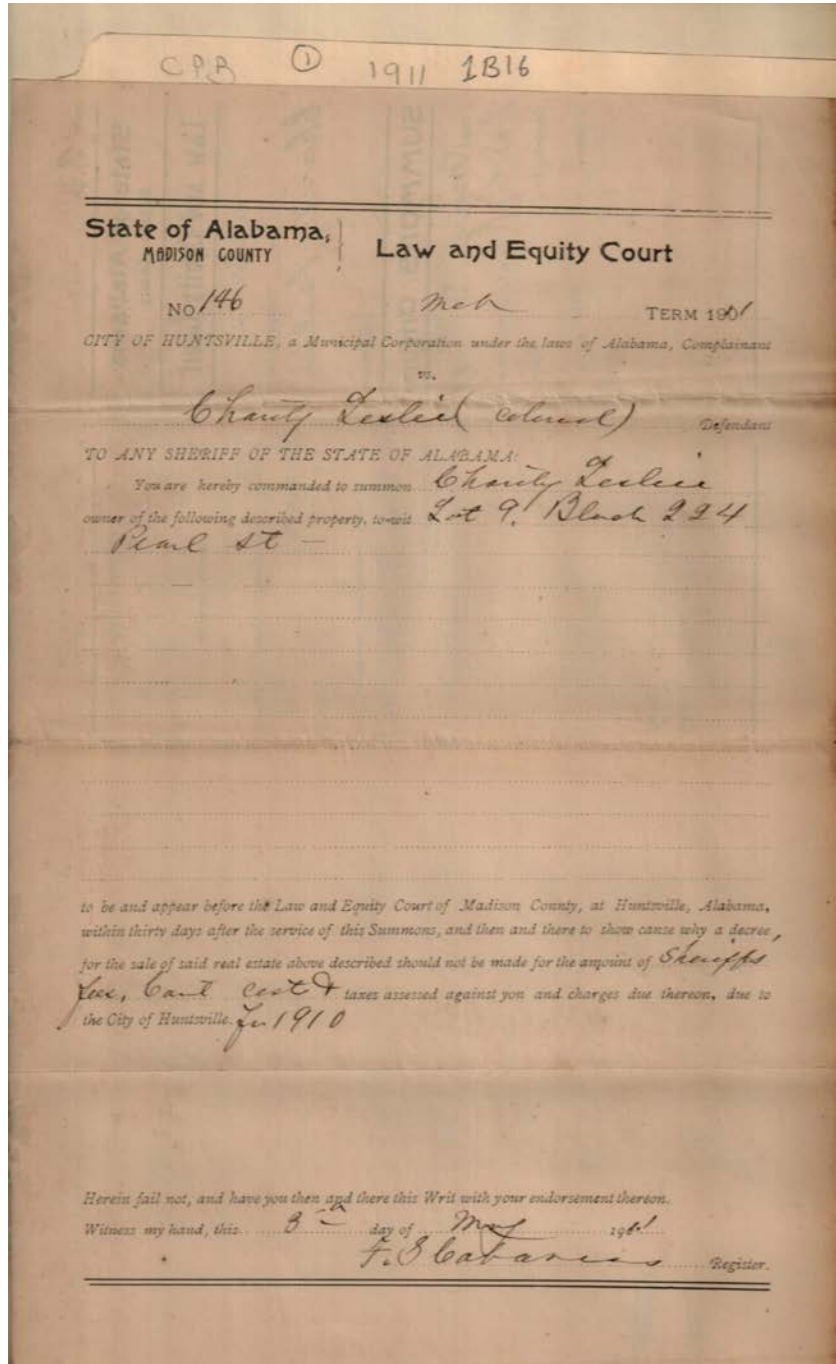 CPB ① 1911 1B16
State of Alabama, } Law and Equity Court
MADISON COUNTY
No 146 Mch TERM 1911
CITY OF HUNTSVILLE, a Municipal Corporation under the laws of Alabama, Complainant
vs.
Charity Leslie (colored) Defendant
TO ANY SHERIFF OF THE STATE OF ALABAMA:
You are hereby commanded to summon Charity Leslie
owner of the following described property, to-wit Lot 9, Block 224
Pearl St —
to be and appear before the Law and Equity Court of Madison County, at Huntsville, Alabama,
within thirty days after the service of this Summons, and then and there to show cause why a decree,
for the sale of said real estate above described should not be made for the amount of Sheriffs
fees, Court cost & taxes assessed against you and charges due thereon, due to
the City of Huntsville. for 1910
Herein fail not, and have you then and there this Writ with your endorsement thereon.
Witness my hand, this day of May 1911
F. S Cabaniss Register.